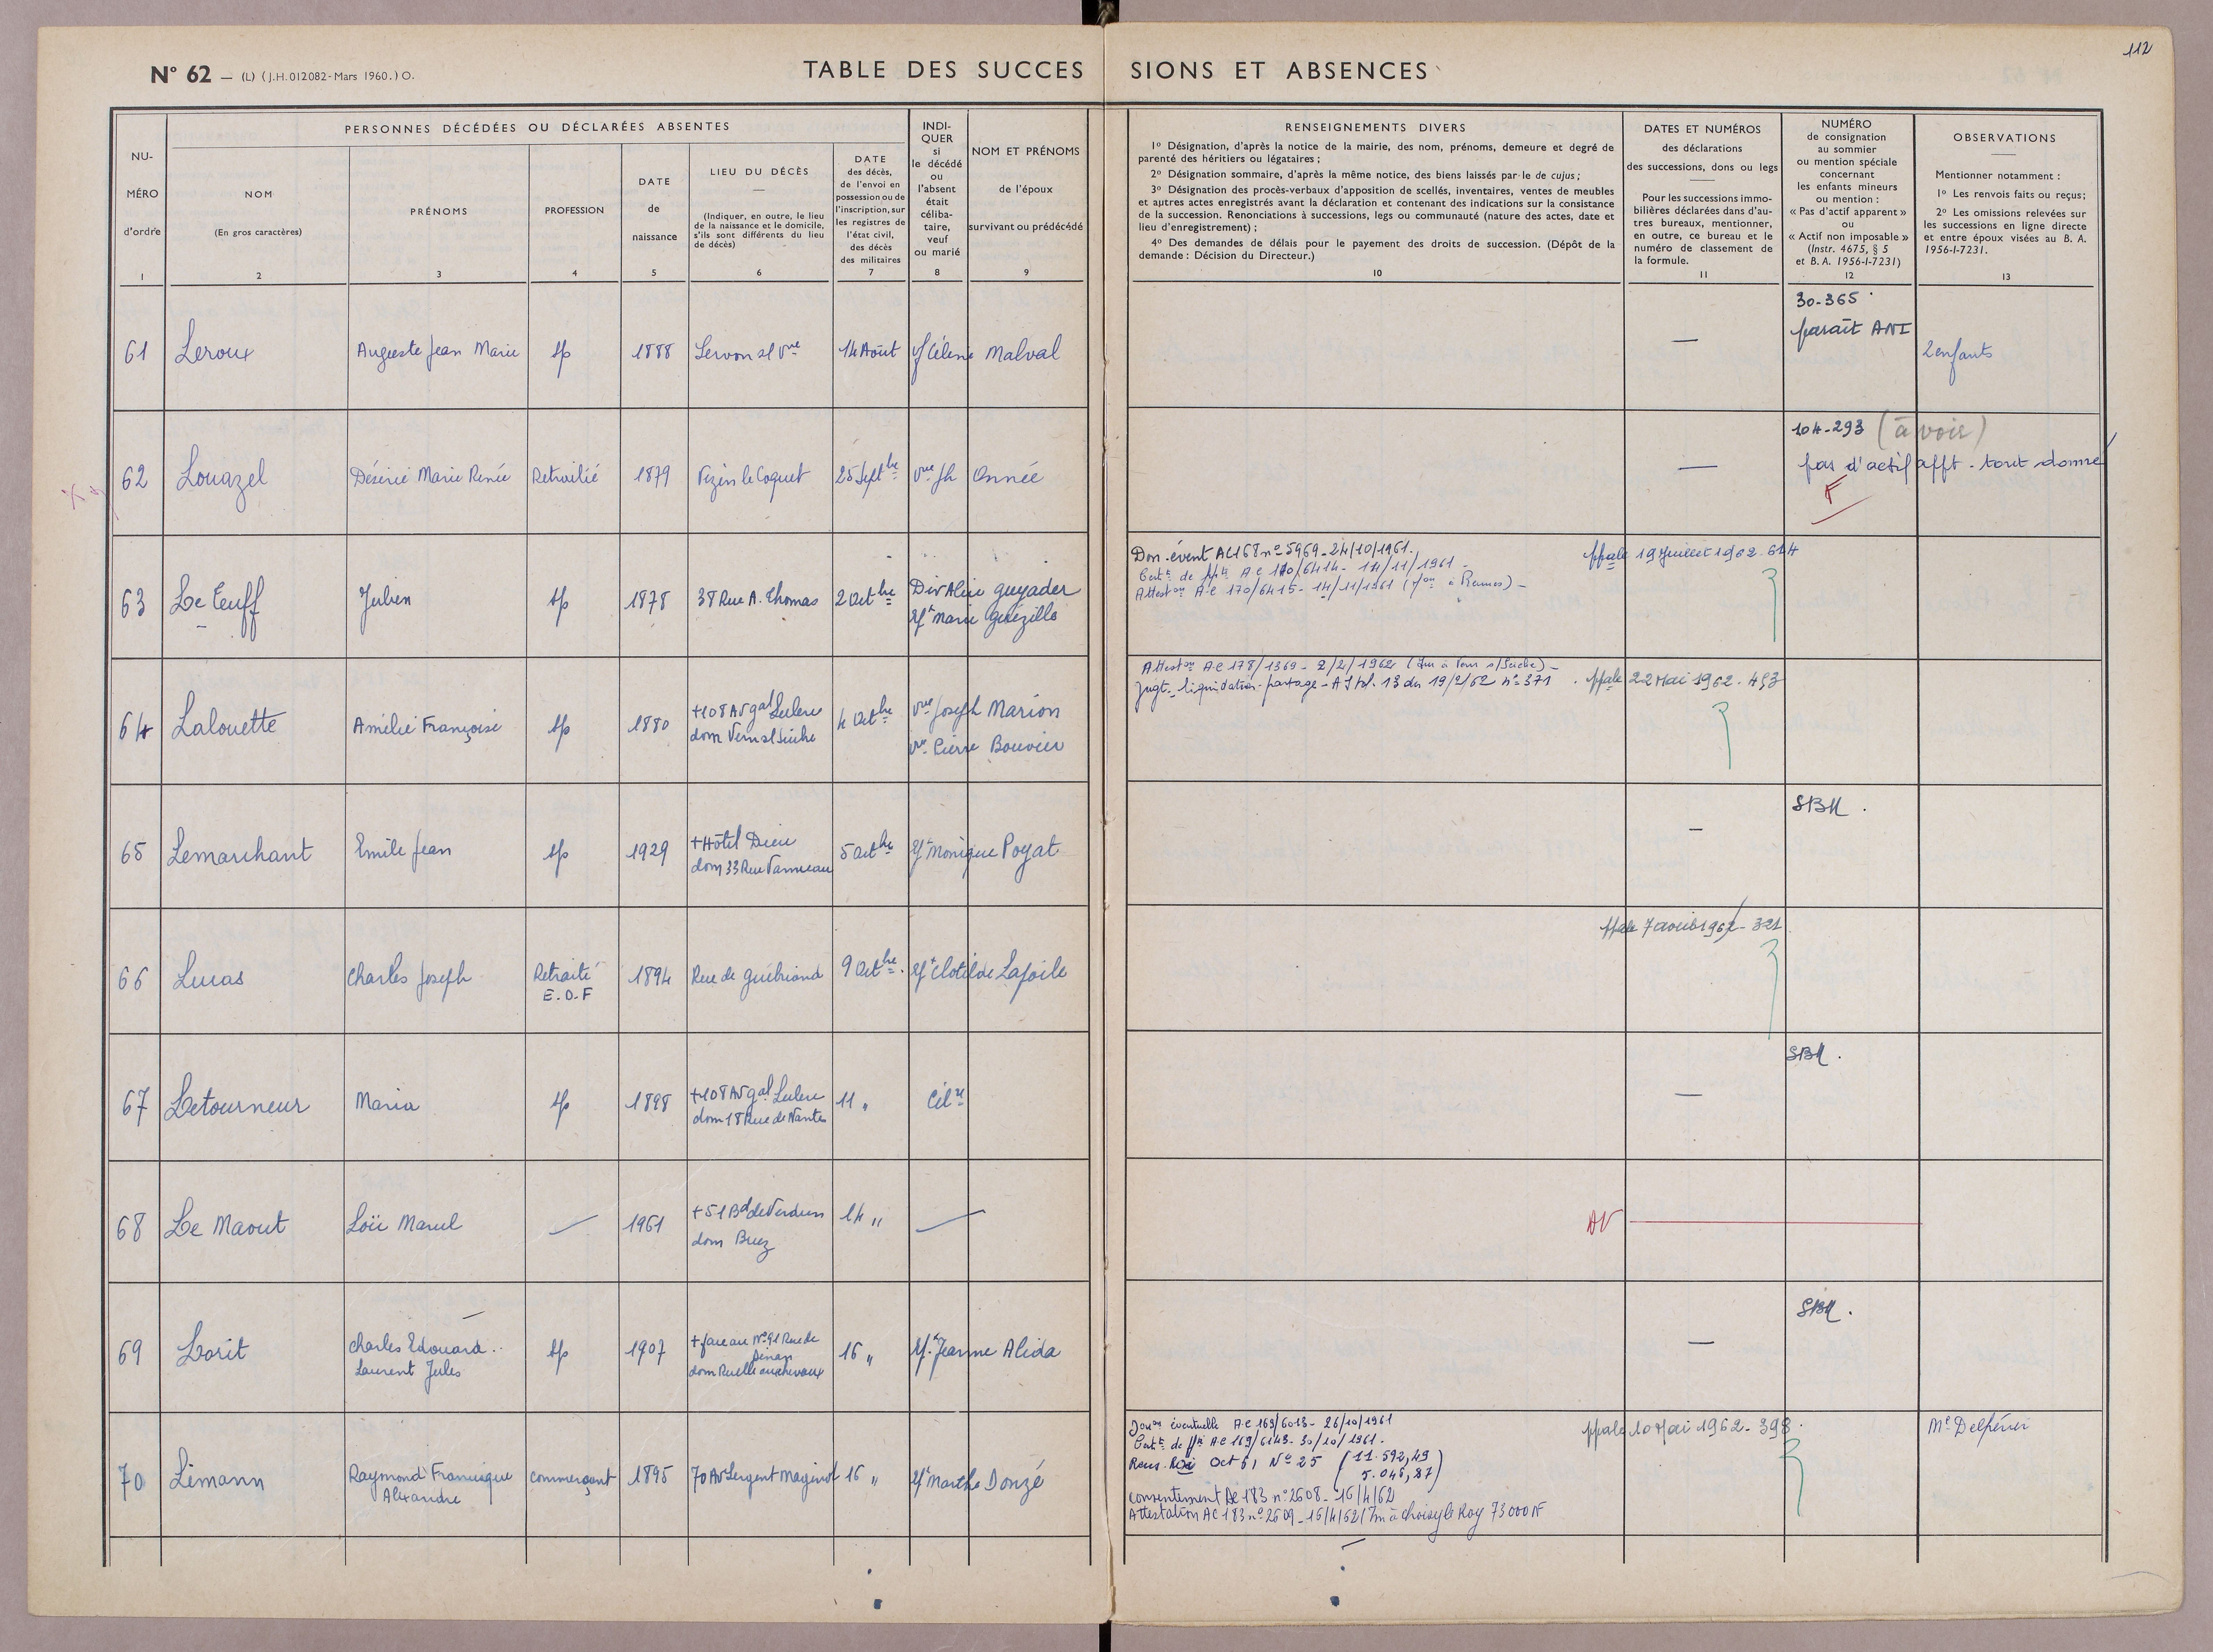 112
N° 62 — (L) (J.H. 012082 - Mars 1960.) O.
TABLE DES SUCCES SIONS ET ABSENCES
NU-
MÉRO
d'ordre
1
PERSONNES DÉCÉDÉES OU DÉCLARÉES ABSENTES
NOM
(En gros caractères)
2
PRÉNOMS
3
PROFESSION
4
DATE
de
naissance
5
LIEU DU DÉCÈS
(Indiquer, en outre, le lieu
de la naissance et le domicile,
s'ils sont différents du lieu
de décès)
6
DATE
des décès,
de l'envoi en
possession ou de
l'inscription, sur
les registres de
l'état civil,
des décès
des militaires
7
INDI-
QUER
si
le décédé
ou
l'absent
était
céliba-
taire,
veuf
ou marié
8
NOM ET PRÉNOMS
de l'époux
survivant ou prédécédé
9
RENSEIGNEMENTS DIVERS
1° Désignation, d'après la notice de la mairie, des nom, prénoms, demeure et degré de
parenté des héritiers ou légataires ;
2° Désignation sommaire, d'après la même notice, des biens laissés par le de cujus ;
3° Désignation des procès-verbaux d'apposition de scellés, inventaires, ventes de meubles
et autres actes enregistrés avant la déclaration et contenant des indications sur la consistance
de la succession. Renonciations à successions, legs ou communauté (nature des actes, date et
lieu d'enregistrement) ;
4° Des demandes de délais pour le payement des droits de succession. (Dépôt de la
demande : Décision du Directeur.)
10
DATES ET NUMÉROS
des déclarations
des successions, dons ou legs
Pour les successions immo-
bilières déclarées dans d'au-
tres bureaux, mentionner,
en outre, ce bureau et le
numéro de classement de
la formule.
11
NUMÉRO
de consignation
au sommier
ou mention spéciale
concernant
les enfants mineurs
ou mention :
« Pas d'actif apparent »
ou
« Actif non imposable »
(Instr. 4675, § 5
et B. A. 1956-I-7231)
12
OBSERVATIONS
Mentionner notamment :
1° Les renvois faits ou reçus ;
2° Les omissions relevées sur
les successions en ligne directe
et entre époux visées au B. A.
1956-I-7231.
13
61 Leroux Auguste Jean Marie sp 1888 Servon s/ Vne 14 Août Malval — 30-365
parait ANI
2 enfants
62 Louazel Désirée Marie Renée Retraitée 1879 Vezin le Coquet 25 Septbre Vve Année — 104-293 (à voir)
pas d'actif appt . tout donné
63 Le Teuff Julien sp 1878 38 Rue A. Thomas 2 Octbre Div Aline Guyader
Ep Marie Guézille
Don. évent AC 168 n° 5969 - 24/10/1961.
Certt de ppté AC 170/6414 - 14/11/1961 -
Atteston AC 170/6415 - 14/11/1961 ( à Rennes) -
ppale 19 Juillet 1962 - 614
64 Lalouette Amélie Françoise sp 1880 +108 Av gal Leclerc
dom Vern s/ Seiche
4 Octbre Vve Joseph Marion
Vve Pierre Bouvier
Atteston AC 178/1369 - 2/2/1962 (Im à Vern s/Seiche) -
Jugt - liquidation - partage - A J vol. 13 du 19/2/62 n° 371
ppale 22 Mai 1962 . 453
65 Lemarchant Emile Jean sp 1929 + Hôtel Dieu
dom 33 Rue Vanneau
5 Octbre Ep Monique Poyat — SBM .
66 Lucas Charles Joseph Retraité
E.D.F
1894 Rue de Guébriand 9 Octbre Ep Clotilde Lafoile ppale 7 avril 1962 - 321
67 Letourneur Maria sp 1898 +108 Av gal Leclerc
dom 18 Rue de Nantes
11 " Célre — SBM .
68 Le Maout Loïc Marcel — 1961 + 51 Bd de Verdun
dom Bruz
14 " — AV
69 Lorit Charles Edouard
Laurent Jules
sp 1907 + face au N° 91 Rue de
Dinan
dom Ruelle aux chevaux
16 " Ep Jeanne Alida — SBM .
70 Limann Raymond
Alexandre
commerçant 1895 70 Av Sergent Maginot 16 " Ep Marthe Donzé
Donon éventuelle AC 169/6013 - 26/10/1961
Certt de ppté AC 169/6143 - 30/10/1961 -
Rens. Oct 61 N° 25 (11.592,49
5.046,87)
consentement AC 183 n° 2608 - 16/4/62
Attestation AC 183 n° 2609 - 16/4/62 (Im à Choisy le Roy 73000 NF
ppale 10 Mai 1962 - 398
Me Delpérier